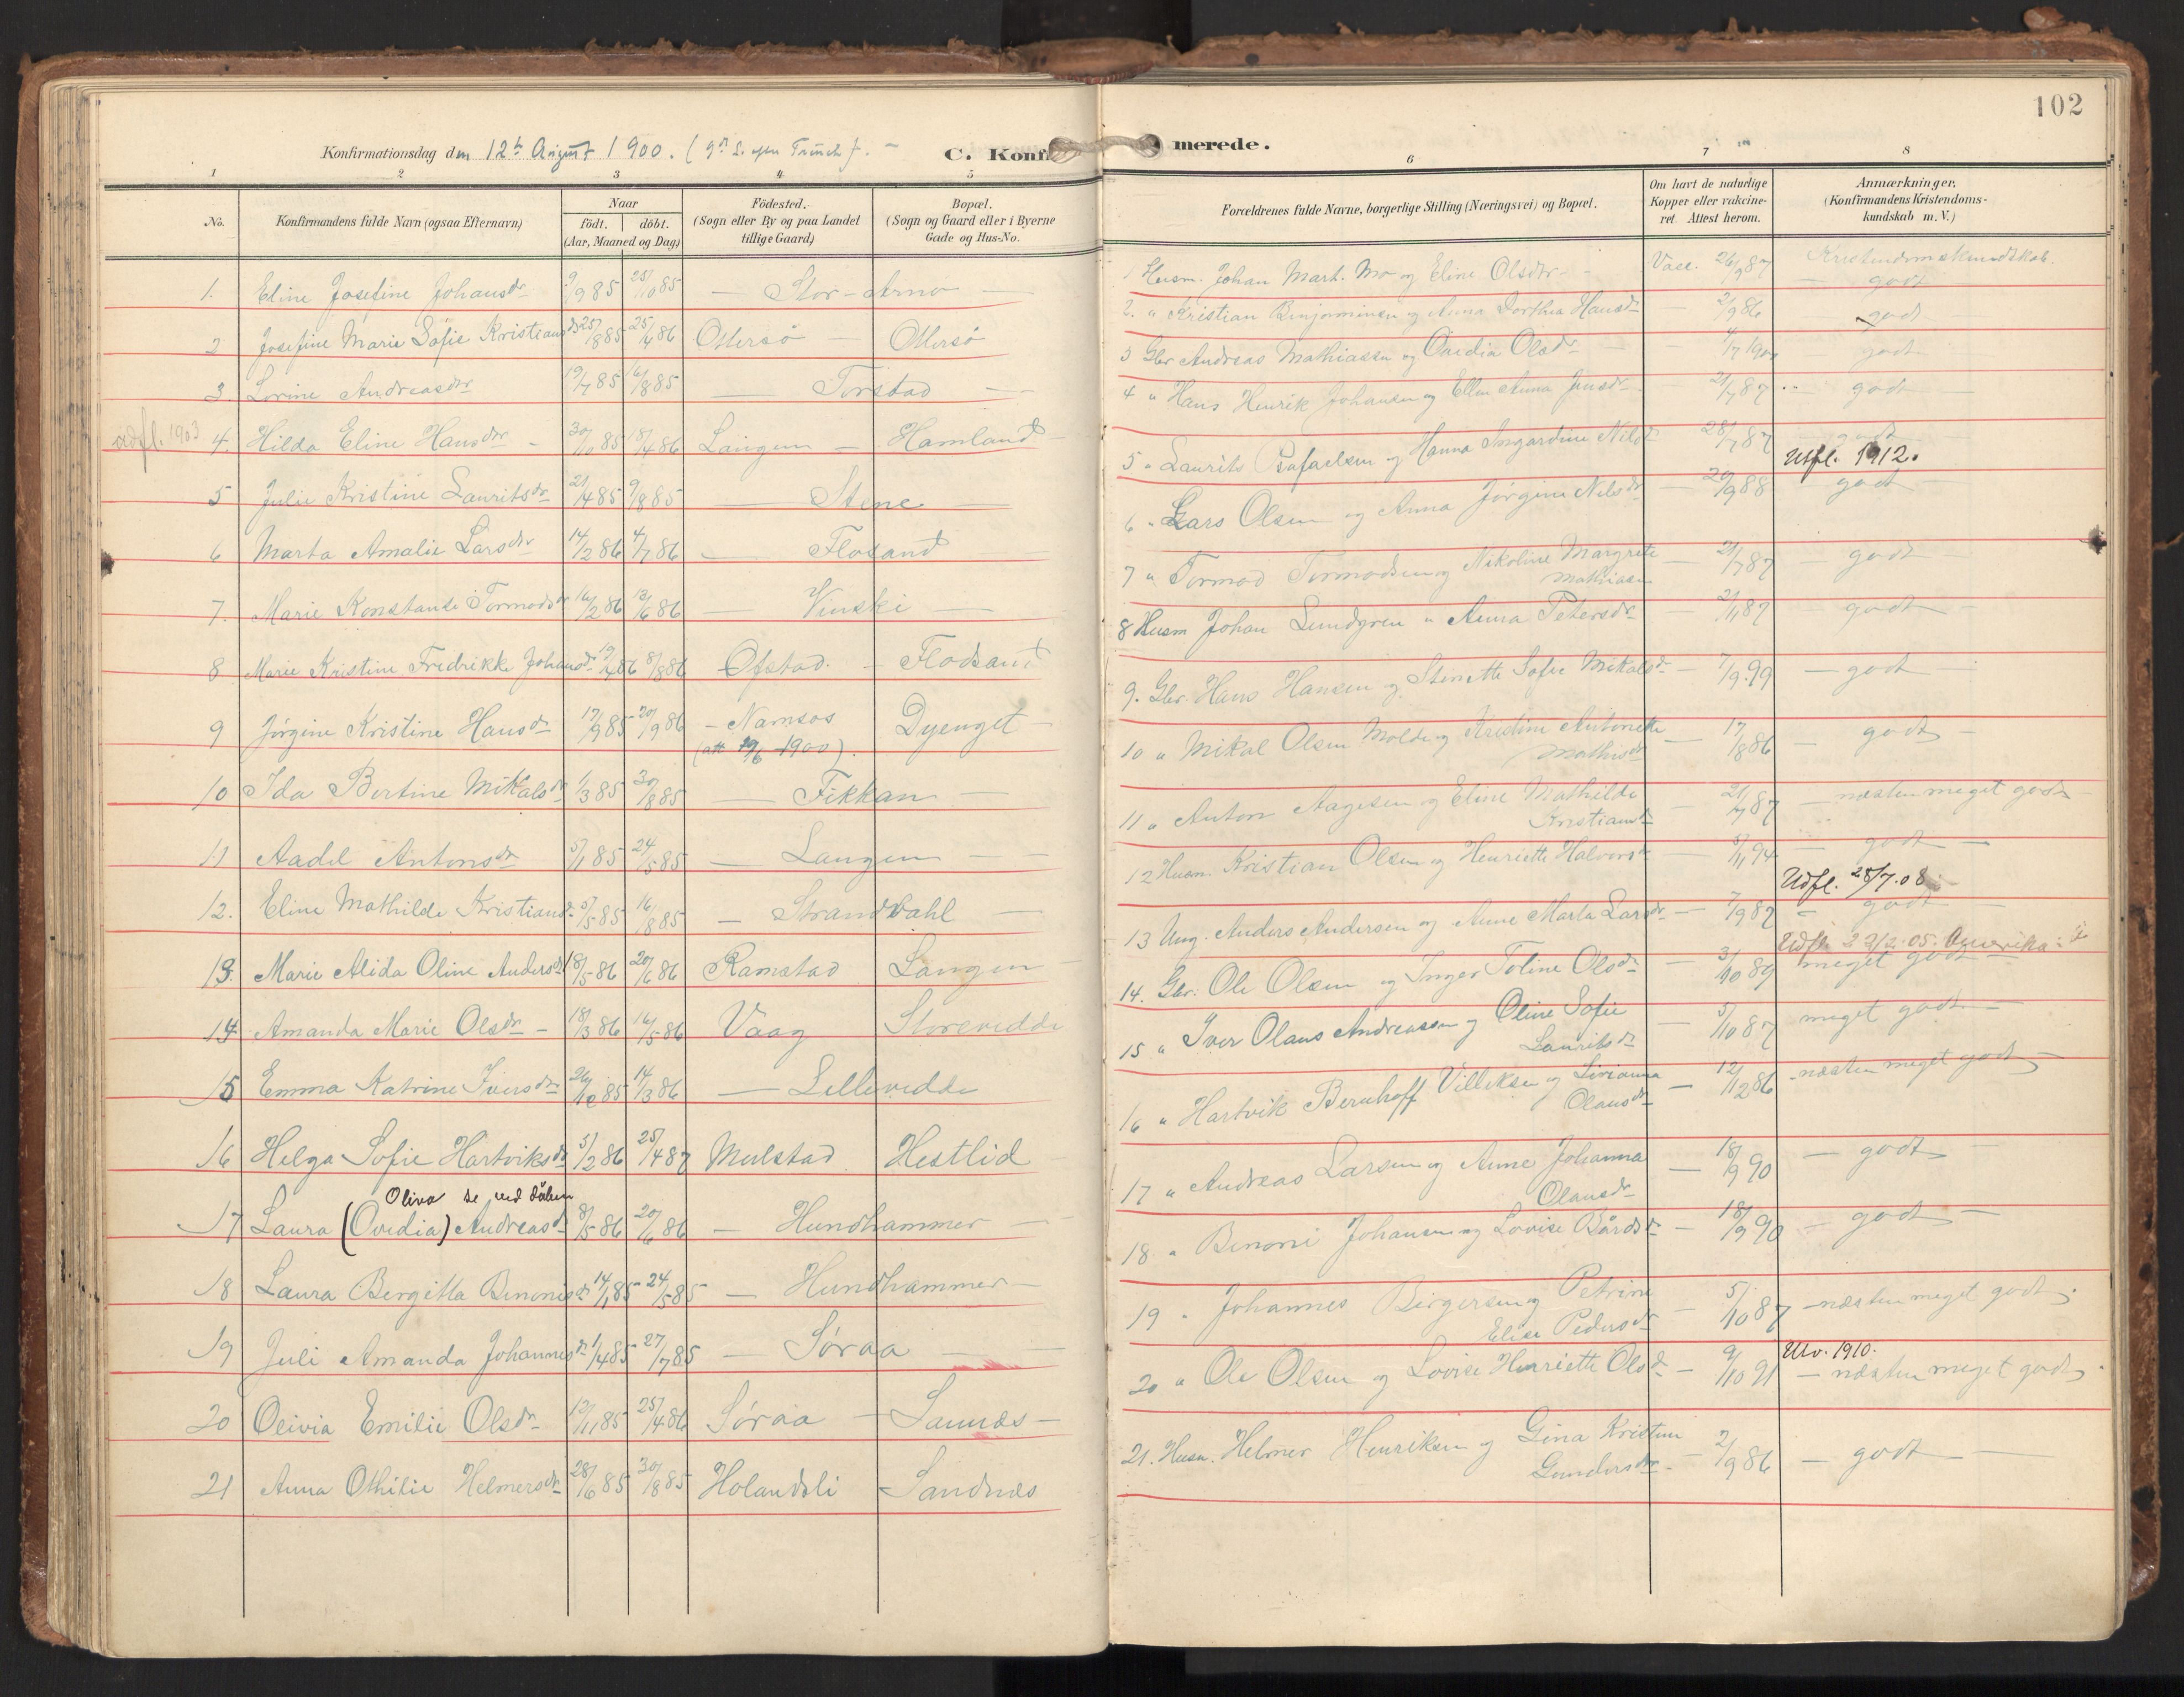 102
Konfirmationsdag den 12te August 1900. (9de S. efter Trinit.). –
C. Konfir merede.
1 2 3 4 5 6 7 8
No.
Konfirmandens fulde Navn (ogsaa Efternavn)
Naar
födt. döbt.
(Aar, Maaned og Dag)
Födested.
(Sogn eller By og paa Landet
tillige Gaard)
Bopæl.
(Sogn og Gaard eller i Byerne
Gade og Hus-No.
Forældrenes fulde Navne, borgerlige Stilling (Næringsvei) og Bopæl.
Om havt de naturlige
Kopper eller vakcine-
ret. Attest herom.
Anmærkninger.
(Konfirmandens Kristendoms-
kundskab m. V.)
1. Eline Josefine Johansdr 9/9 85 25/10 85 — Stor-Arnø —
2 Josefine Marie Sofie Kristiansdr 25/1 85 25/4 86 Ottersö — Ottersö
3. Lorine Andreasdr 19/7 85 16/8 85 — Torstad —
udfl. 1903
4. Hilda Eline Hansdr 30/10 85 18/4 86 Langen — Hamland
5 Julie Kristine Lauritsdr 21/4 85 9/8 85 — Stene —
6 Marta Amalie Larsdr 14/2 86 4/7 86 — Flosand
7. Marie Konstanse Tormodsdr 16/2 86 13/6 86 — Vinski —
8 Marie Kristine Fredrikke Johansdr 19/4 86 8/8 86 Ofstad. — Flosand
9 Jørgine Kristine Hansdr 17/9 85 20/9 86 – Namsos Dyenget
(att 19/6 1900).
10 Ida Bertine Mikalsdr 1/3 85 30/8 85 — Fikkan —
11 Aadel Antonsdr 5/1 85 24/5 85 — Langen —
12. Eline Mathilde Kristiansdr 5/5 85 16/8 85 — Strandvahl —
13. Marie Alida Oline Andersdr 18/5 86 20/6 86 Ramstad Langen
14 Amanda Marie Olsdr – 18/3 86 16/5 86 Vaag Storevedde
15 Emma Katrine Iversdr 26/12 85 14/3 86 — Lillevedde
16 Helga Sofie Hartviksdr 5/2 86 25/4 87 Mulstad Hestlid
Oliva se ved dåben
17 Laura (Ovedia) Andreasdr 8/5 86 20/6 86 — Hundhammer —
18 Laura Bergitta Benonisdr 14/1 85 24/5 85 — Hundhammer —
19 Juli Amanda Johannesdr 1/4 85 27/7 85 — Søraa —
20 Olivia Emilie Olsdr 12/11 85 25/4 86 Søraa — Sannæs —
21 Anna Othilie Helmersdr 28/6 85 30/8 85 Holandsli Sandnæs
1 Husm. Johan Mart. Mo og Eline Olsdtr – Vacc. 26/9 87 Kristendomskundskab.
— godt
2. " Kristian Benjaminsen og Anna Dorthea Hansdr — 2/9 86 godt
3 Gbr Andreas Mathiassen og Ovedia Olsdr — 4/7 1900 godt
4 " Hans Henrik Johansen og Ellen Anna Jensdr — 21/7 87 — godt —
5 " Laurits Rafaelsen og Hanna Ingardine Nilsdr 28/7 87 — godt
Utfl. 1912.
6 " Lars Olsen og Anna Jørgine Nilsdr — 20/9 88 godt —
7 " Tormod Tormodsen og Nikoline Margrete
Mathiasen — 21/7 87 — godt —
8 Husm Johan Lundgren " Anna Petersdr — 21/1 87 — godt —
9. Gbr. Hans Hansen og Stinette Sofie Mikalsdr — 7/9 99 — godt —
10 " Mikal Olsen Molde og Kristine Antonette
Mathisdr — 17/8 86 — godt —
11 " Anton Aagesen og Eline Mathilde
Kristiansdr — 21/7 87 – næsten meget godt –
12 Husm. Kristian Olsen og Henriette Halvorsdr — 5/11 94 — godt —
Udfl. 28/7.08.
13 Ung. Anders Andersen og Anne Marta Larsdr — 7/9 87 – godt –
Udfl. 22/2.05. Amerika
14. Gbr. Ole Olsen og Inger Toline Olsdr — 3/10 89 meget godt —
15 " Iver Olaus Andreassen og Oline Sofie
Lauritsdr — 5/10 87 meget godt —
16 " Hartvik Bernhoff Villiksen og Livianna
Olausdr — 12/12 86 – næsten meget godt —
17 " Andreas Larsen og Anne Johanna
Olausdr — 18/9 90 — godt —
18 " Benoni Johansen og Lovise Bårdsdr — 18/9 90 — godt —
19 " Johannes Birgersen og Petrine
Elise Pedersdr — 5/10 87 – næsten meget godt.
Utv. 1910.
20 " Ole Olsen og Lovise Henriette Olsdr — 9/10 91 – næsten meget godt.
21. Husm. Helmer Henriksen og Gina Kristine
Gundersdtr – 2/9 86 — godt —